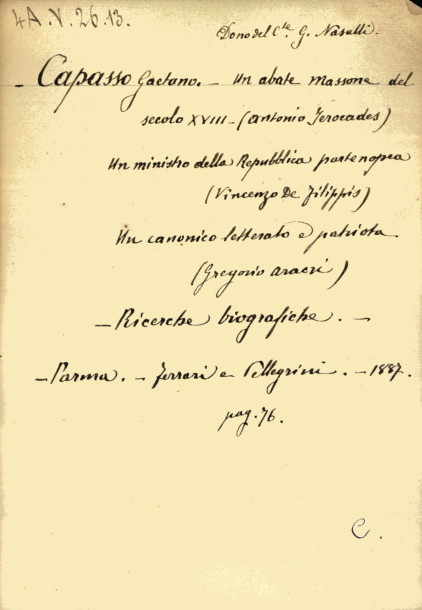 4A.V.26.13.
Dono del Cte. G. Nasalli.
- Capasso Gaetano. - Un abate massone del
secolo XVIII - (Antonio Jerocades)
Un ministro della Repubblica partenopea
(Vincenzo De Filippis)
Un canonico letterato e patriota
(Gregorio Aracri)
- Ricerche biografiche. -
- Parma. - Ferrari e Pellegrini. - 1887.
pag. 76.
C.